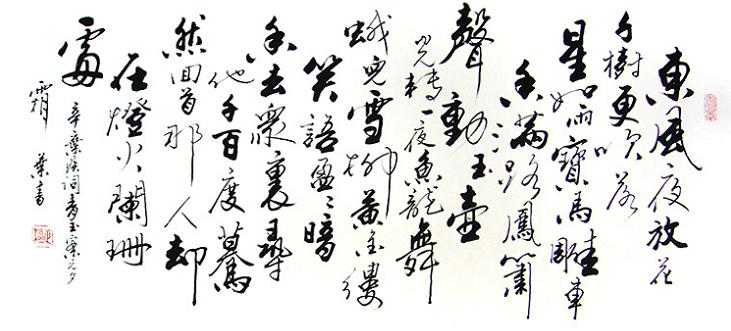 東風夜放花
千樹更吹落
星如雨寶馬雕車
香滿路鳳簫
聲動玉壺
光轉一夜魚龍舞
蛾兒雪柳黃金縷
笑語盈〻暗
香去衆裏尋
他千百度驀
然回首那人却
在燈火闌珊
處
辛棄疾詞青玉案元夕
霜葉書